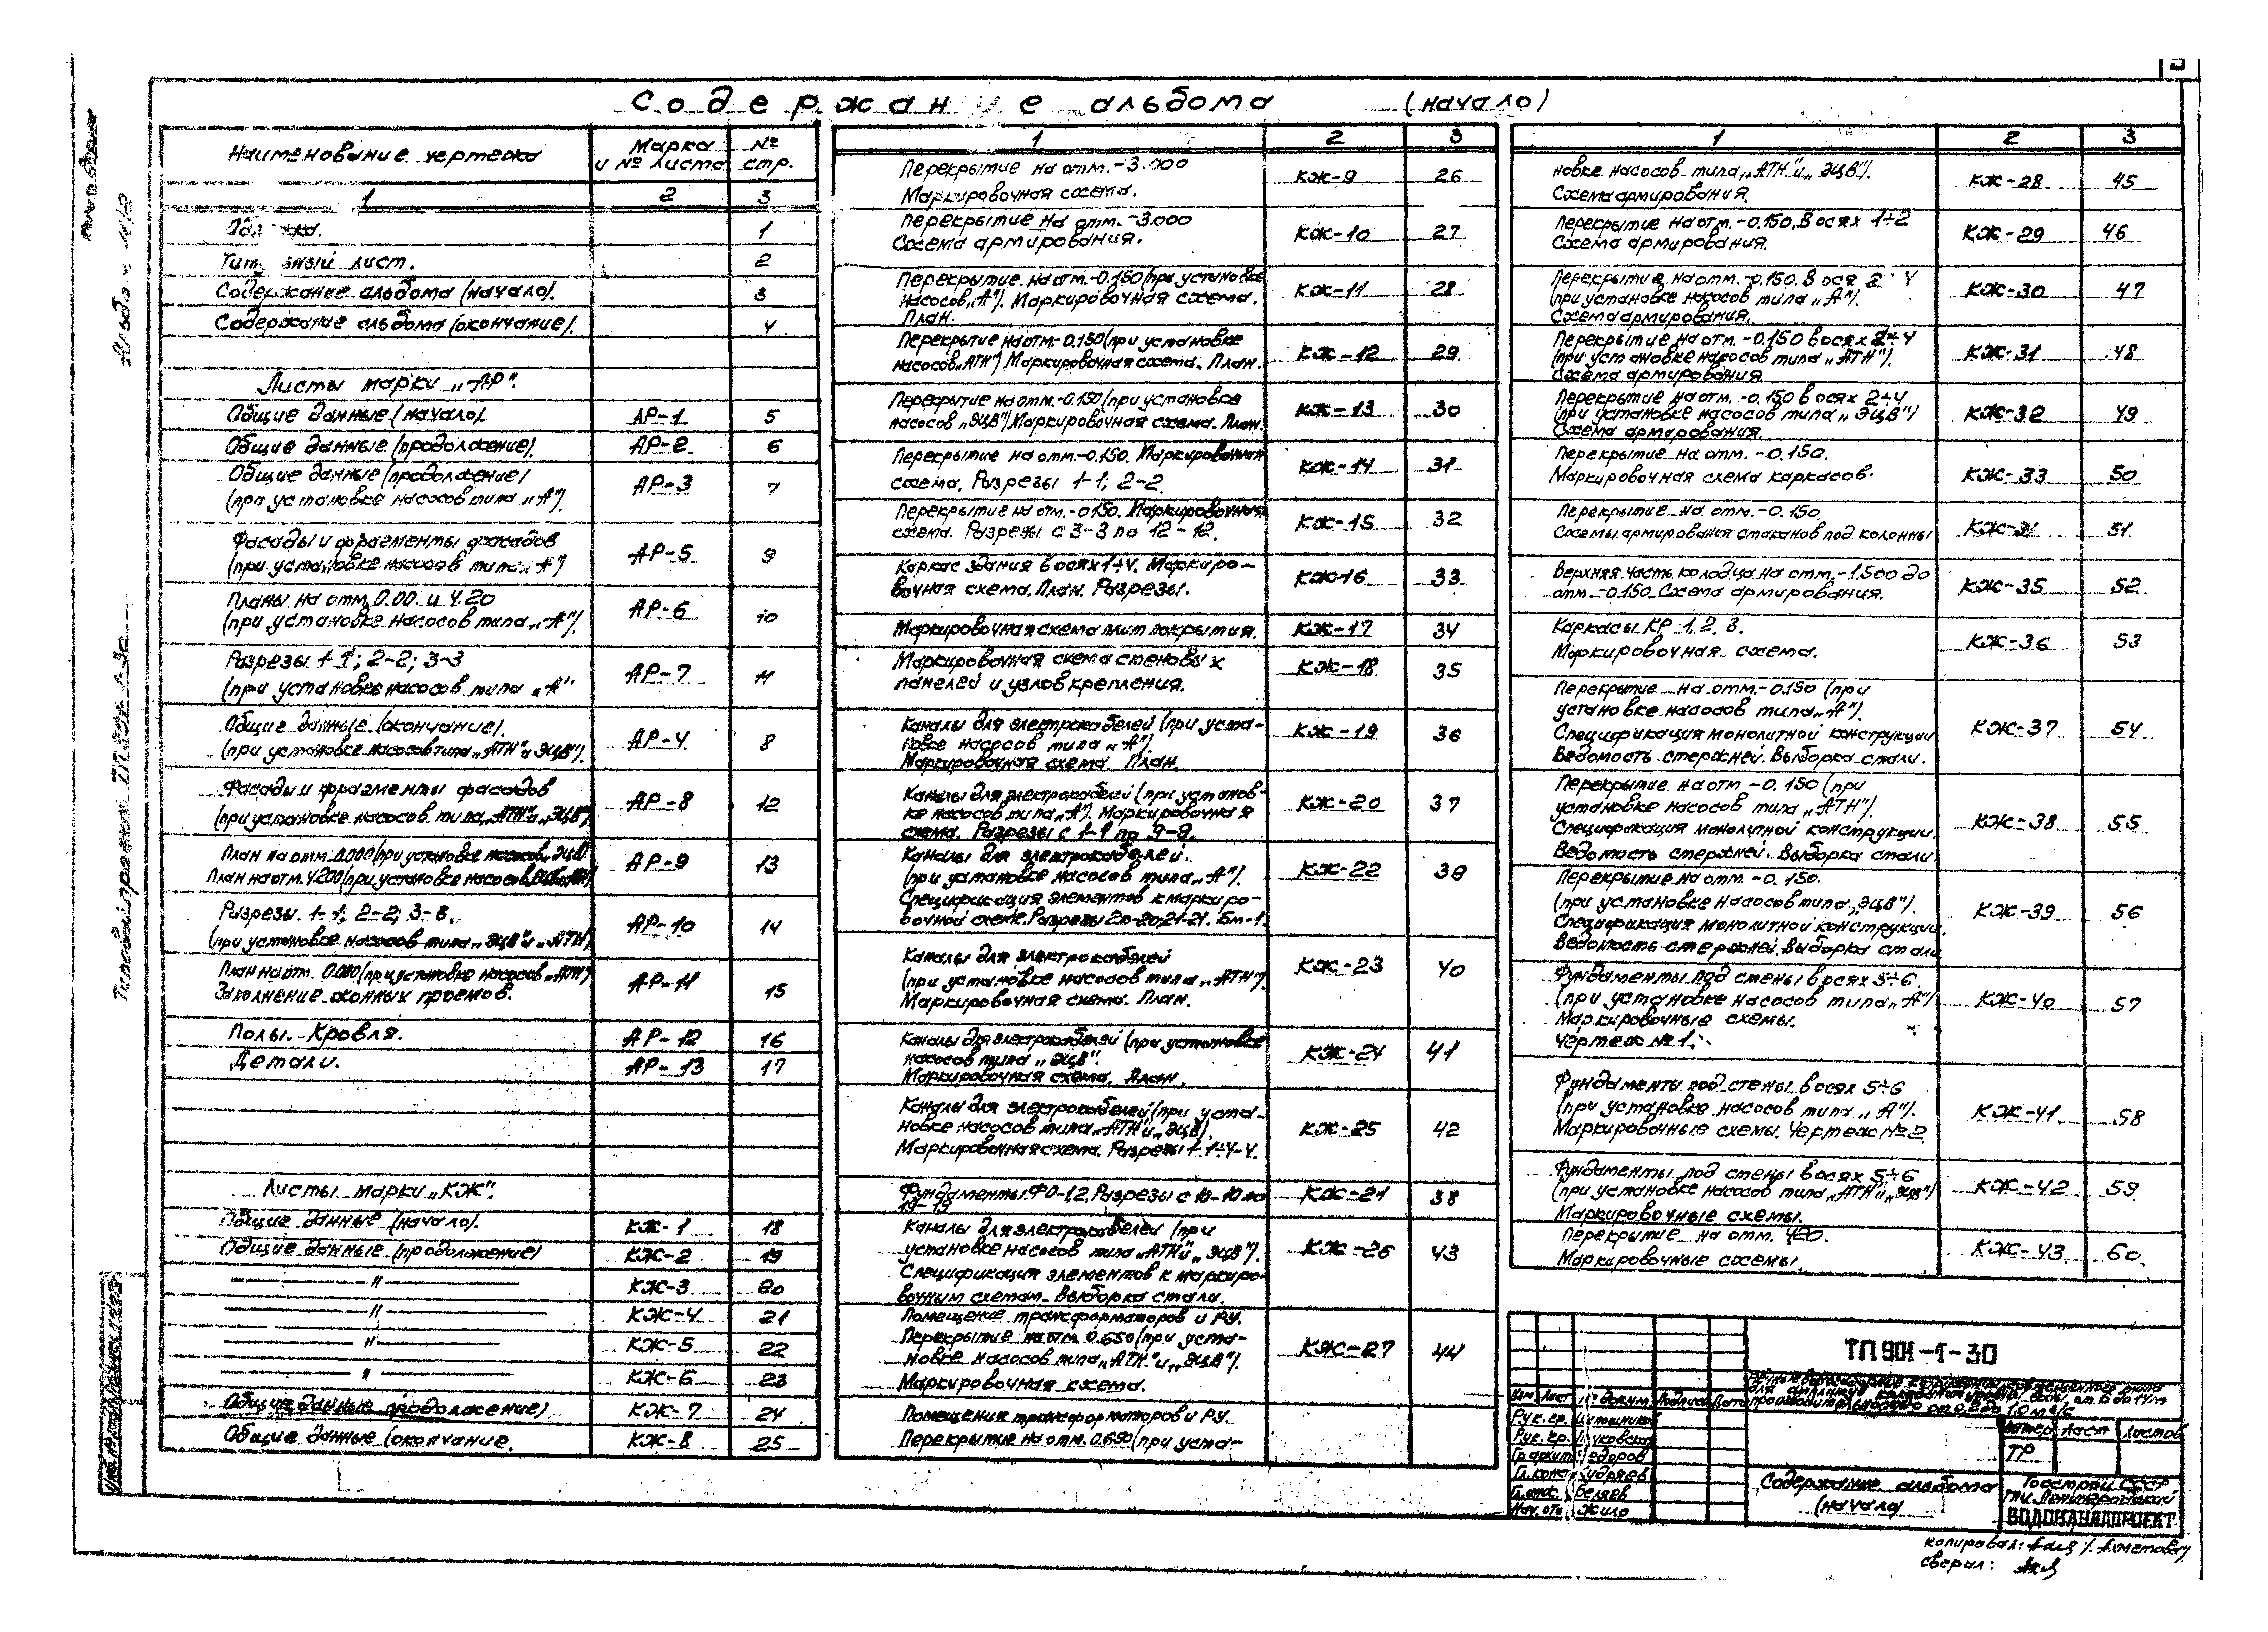 Содержание альбома (начало)
Наименование чертежа Марка и № листа № стр.
1 2 3
1
лист. 2
Содержание альбома (начало). 3
Содержание альбома (окончание). 4
Листы марки „АР".
Общие данные (начало). АР-1 5
Общие данные (продолжение). АР-2 6
Общие данные (продолжение)
(при установке насосов типа „А"). АР-3 7
Фасады и фрагменты фасадов
(при установке насосов типа „А") АР-5 9
Планы на отм. 0.00. и 4.20
(при установке насосов типа „А"). АР-6 10
Разрезы 1-1; 2-2; 3-3
(при установке насосов типа „А" АР-7 11
Общие данные (окончание).
(при установке насосов типа „АТН" и ЭЦВ"). АР-4 8
Фасады и фрагменты фасадов
(при установке насосов типа „АТН" и „ЭЦВ") АР-8 12
План на отм. 0.000 (при установке насосов „ЭЦВ"
План на отм. 4.200 (при установке насосов АР-9 13
Разрезы 1-1; 2-2; 3-3.
(при установке насосов типа „ЭЦВ" и „АТН") АР-10 14
План на отм. 0.000 (при установке насосов „АТН")
Заполнение оконных проемов. АР-11 15
Полы. Кровля. АР-12 16
Детали. АР-13 17
Листы марки „КЖ".
Общие данные (начало). КЖ-1 18
Общие данные (продолжение) КЖ-2 19
— " — КЖ-3 20
— " — КЖ-4 21
— " — КЖ-5 22
— " — КЖ-6 23
Общие данные продолжение) КЖ-7 24
Общие данные (окончание. КЖ-8 25
1 2 3
Перекрытие на отм. -3.000
Маркировочная схема. КЖ-9 26
Перекрытие на отм. -3.000
Схема армирования. КЖ-10 27
Перекрытие на отм. -0.150 (при установке
насосов „А"). Маркировочная схема.
План. КЖ-11 28
Перекрытие на отм. -0.150 (при установке
насосов „АТН") Маркировочная схема. План. КЖ-12 29
Перекрытие на отм. -0.150 (при установке
насосов „ЭЦВ") Маркировочная схема. План. КЖ-13 30
Перекрытие на отм. -0.150. Маркировочная
схема. Разрезы 1-1; 2-2. КЖ-14 31
Перекрытие на отм. -0.150. Маркировочная
схема. Разрезы с 3-3 по 12-12. КЖ-15 32
Каркас здания в осях 1÷4. Маркиро-
вочная схема. План. Разрезы. КЖ-16 33
Маркировочная схема плит покрытия. КЖ-17 34
Маркировочная схема стеновых
панелей и узлов крепления. КЖ-18 35
Каналы для электрокабелей (при уста-
новке насосов типа „А").
Маркировочная схема. План. КЖ-19 36
Каналы для электрокабелей (при установ-
ке насосов типа „А"). Маркировочная
схема. Разрезы с 1-1 по 9-9. КЖ-20 37
Каналы для электрокабелей.
(при установке насосов типа „А").
Спецификация элементов к маркиро-
вочной схеме. Разрезы 20-20, 21-21. Бм-1. КЖ-22 39
Каналы для электрокабелей
(при установке насосов типа „АТН").
Маркировочная схема. План. КЖ-23 40
Каналы для электрокабелей (при установке
насосов типа „ЭЦВ".
Маркировочная схема. План. КЖ-24 41
Каналы для электрокабелей (при уста-
новке насосов типа „АТН" и „ЭЦВ)
Маркировочная схема. Разрезы 1-1÷4-4. КЖ-25 42
Фундаменты ФО-1,2. Разрезы с 10-10 по
19-19 КЖ-21 38
Каналы для электрокабелей (при
установке насосов типа „АТН" и „ЭЦВ").
Спецификация элементов к маркиро-
вочным схемам. Выборка стали. КЖ-26 43
Помещение трансформаторов и РУ.
Перекрытие на отм. 0.650 (при уста-
новке насосов типа „АТН" и „ЭЦВ").
Маркировочная схема. КЖ-27 44
Помещения трансформаторов и РУ.
Перекрытие на отм. 0.650 (при уста-
1 2 3
новке насосов типа „АТН" и „ЭЦВ").
Схема армирования. КЖ-28 45
Перекрытие на отм. -0.150. В осях 1÷2
Схема армирования. КЖ-29 46
Перекрытие на отм. -0.150. В ося 2 4
(при установке насосов типа „А").
Схема армирования. КЖ-30 47
Перекрытие на отм. -0.150 в осях 2÷4
(при установке насосов типа „АТН").
Схема армирования. КЖ-31 48
Перекрытие на отм. -0.150 в осях 2÷4
(при установке насосов типа „ЭЦВ")
Схема армирования. КЖ-32 49
Перекрытие на отм. -0.150.
Маркировочная схема каркасов. КЖ-33 50
Перекрытие на отм. -0.150
Схемы армирования стаканов под колонны 51
Верхняя часть колодца на отм. -1.500 до
отм. -0.150. Схема армирования. КЖ-35 52
Каркасы КР 1, 2, 3.
Маркировочная схема. КЖ-36 53
Перекрытие на отм. -0.150 (при
установке насосов типа „А").
Спецификация монолитной конструкции
Ведомость стержней. Выборка стали. КЖ-37 54
Перекрытие на отм. -0.150 (при
установке насосов типа „АТН")
Спецификация монолитной конструкции.
Ведомость стержней. Выборка стали. КЖ-38 55
Перекрытие на отм. -0.150.
(при установке насосов типа „ЭЦВ").
Спецификация монолитной конструкции.
Ведомость стержней. Выборка стали КЖ-39 56
Фундаменты под стены в осях 5÷6.
(при установке насосов типа „А")
Маркировочные схемы.
Чертеж № 1. КЖ-40 57
Фундаменты под стены в осях 5÷6
(при установке насосов типа „А").
Маркировочные схемы. Чертеж № 2 КЖ-41 58
Фундаменты под стены в осях 5÷6
(при установке насосов типа „АТН" и „ЭЦВ")
Маркировочные схемы. КЖ-42 59
Перекрытие на отм. 4.20.
Маркировочные схемы. КЖ-43 60
ТП 901-1-30
для амплитуд колебания уровня воды от 6 до
производительностью от 0.8 до 1.0 м³/с
Изм Лист № докум. Подпись Дата
Рук. гр.
Рук. гр.
Гл. конс.
Гл. инж. Беляев
Нач. отд Жило
Литер Лист Листов
ТР
Содержание альбома
(начало)
Госстрой СССР
ГПИ Ленинградский
ВОДОКАНАЛПРОЕКТ
копировал:
сверил:
Типовой проект